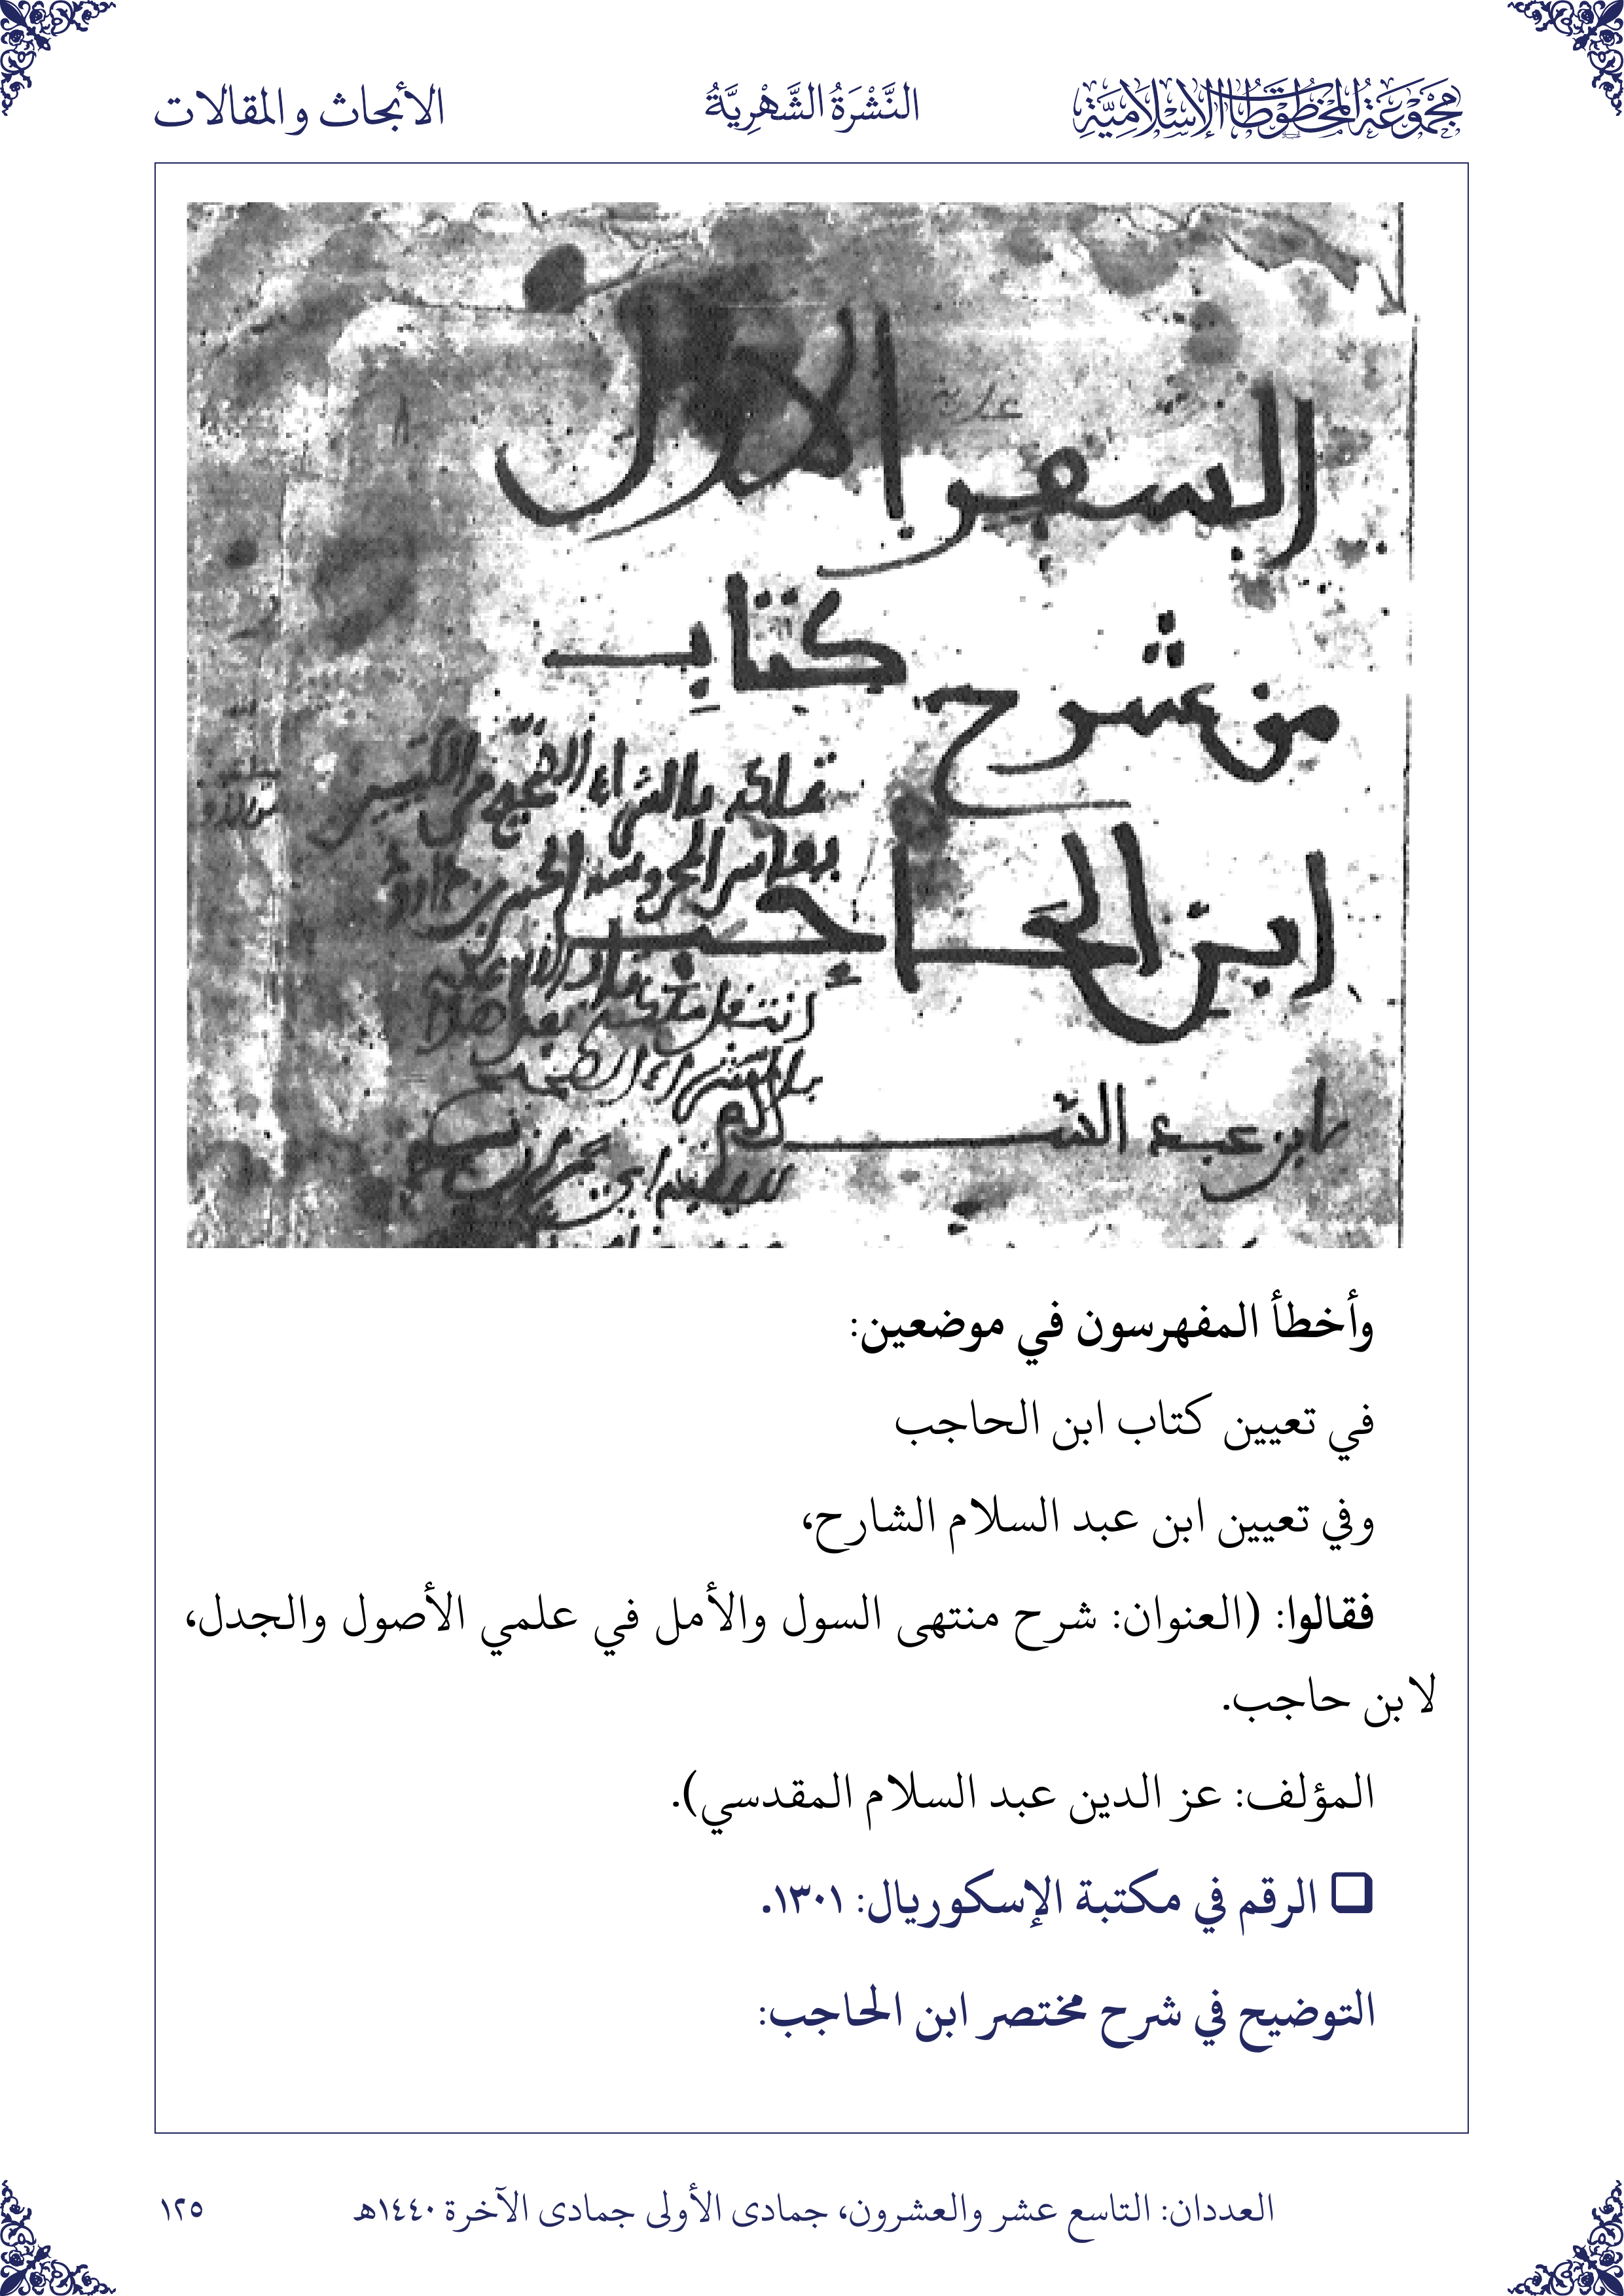 مجموعة المخطوطات الإسلامية
النَّشْرَةُ الشَّهْرِيَّةُ
الأبحاث والمقالات
السفر الاول
من شرح كتاب
ابن الحاجب
لابن عبد السلام
تملكه بالشراء الصحيح من
انتقل ملكه بعد
بالشراء الصحيح
وأخطأ المفهرسون في موضعين:
في تعيين كتاب ابن الحاجب
وفي تعيين ابن عبد السلام الشارح،
فقالوا: (العنوان: شرح منتهى السول والأمل في علمي الأصول والجدل،
لابن حاجب.
المؤلف: عز الدين عبد السلام المقدسي).
❑ الرقم في مكتبة الإسكوريال: ١٣٠١.
التوضيح في شرح مختصر ابن الحاجب:
العددان: التاسع عشر والعشرون، جمادى الأولى جمادى الآخرة ١٤٤٠هـ
١٢٥